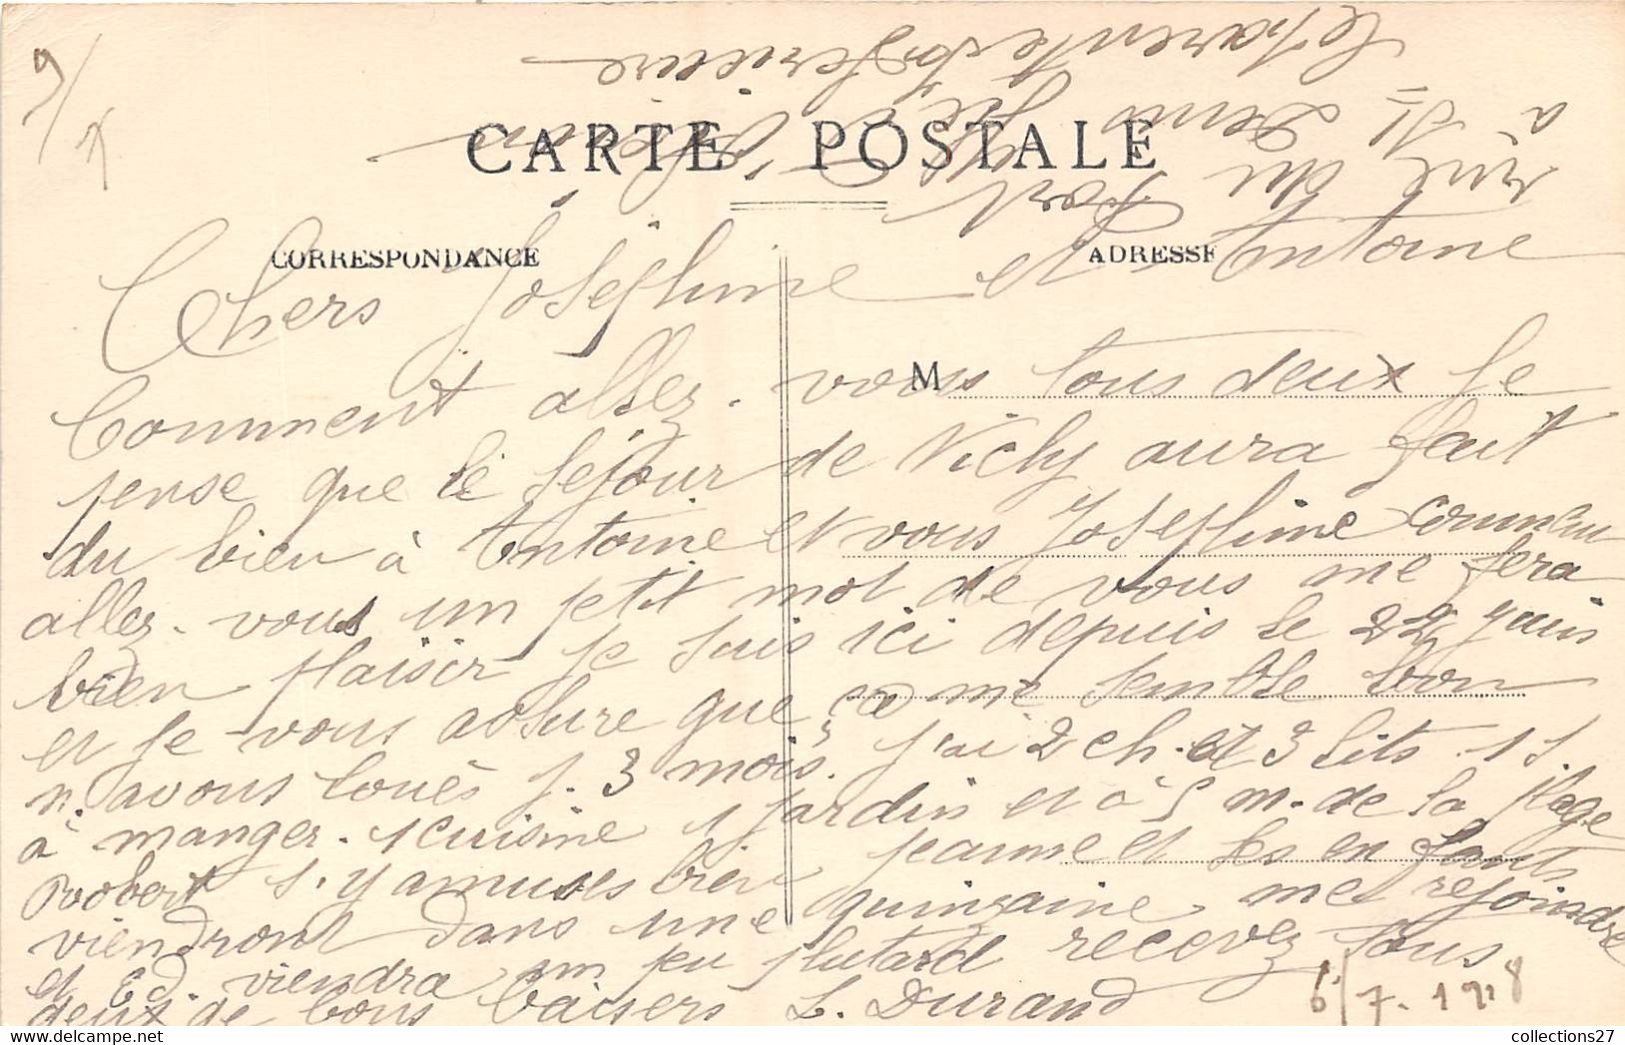 9/7
CARTE POSTALE
CORRESPONDANCE
ADRESSE
M
Chers Joséphine et Antoine
Comment allez-vous tous deux je
pense que le séjour de Vichy aura fait
du bien à Antoine et vous Josephine commen
allez-vous un petit mot de vous me fera
bien plaisir je suis ici depuis le 22 juin
et je vous assure que ça me semble bon
n. avons loués p. 3 mois. j'ai 2 ch. et 3 lits. 1 s.
à manger. 1 cuisine 1 jardin et à 5 m. de la plage
Robert s'y amuse bien jeanne et les enfants
viendront dans une quinzaine me rejoindre
et Ed. viendra un peu plutard recevez tous
deux de bons baisers L. Durand
rue du Port
à St Denis
Charente Inferieure
6/7. 1918
collections27